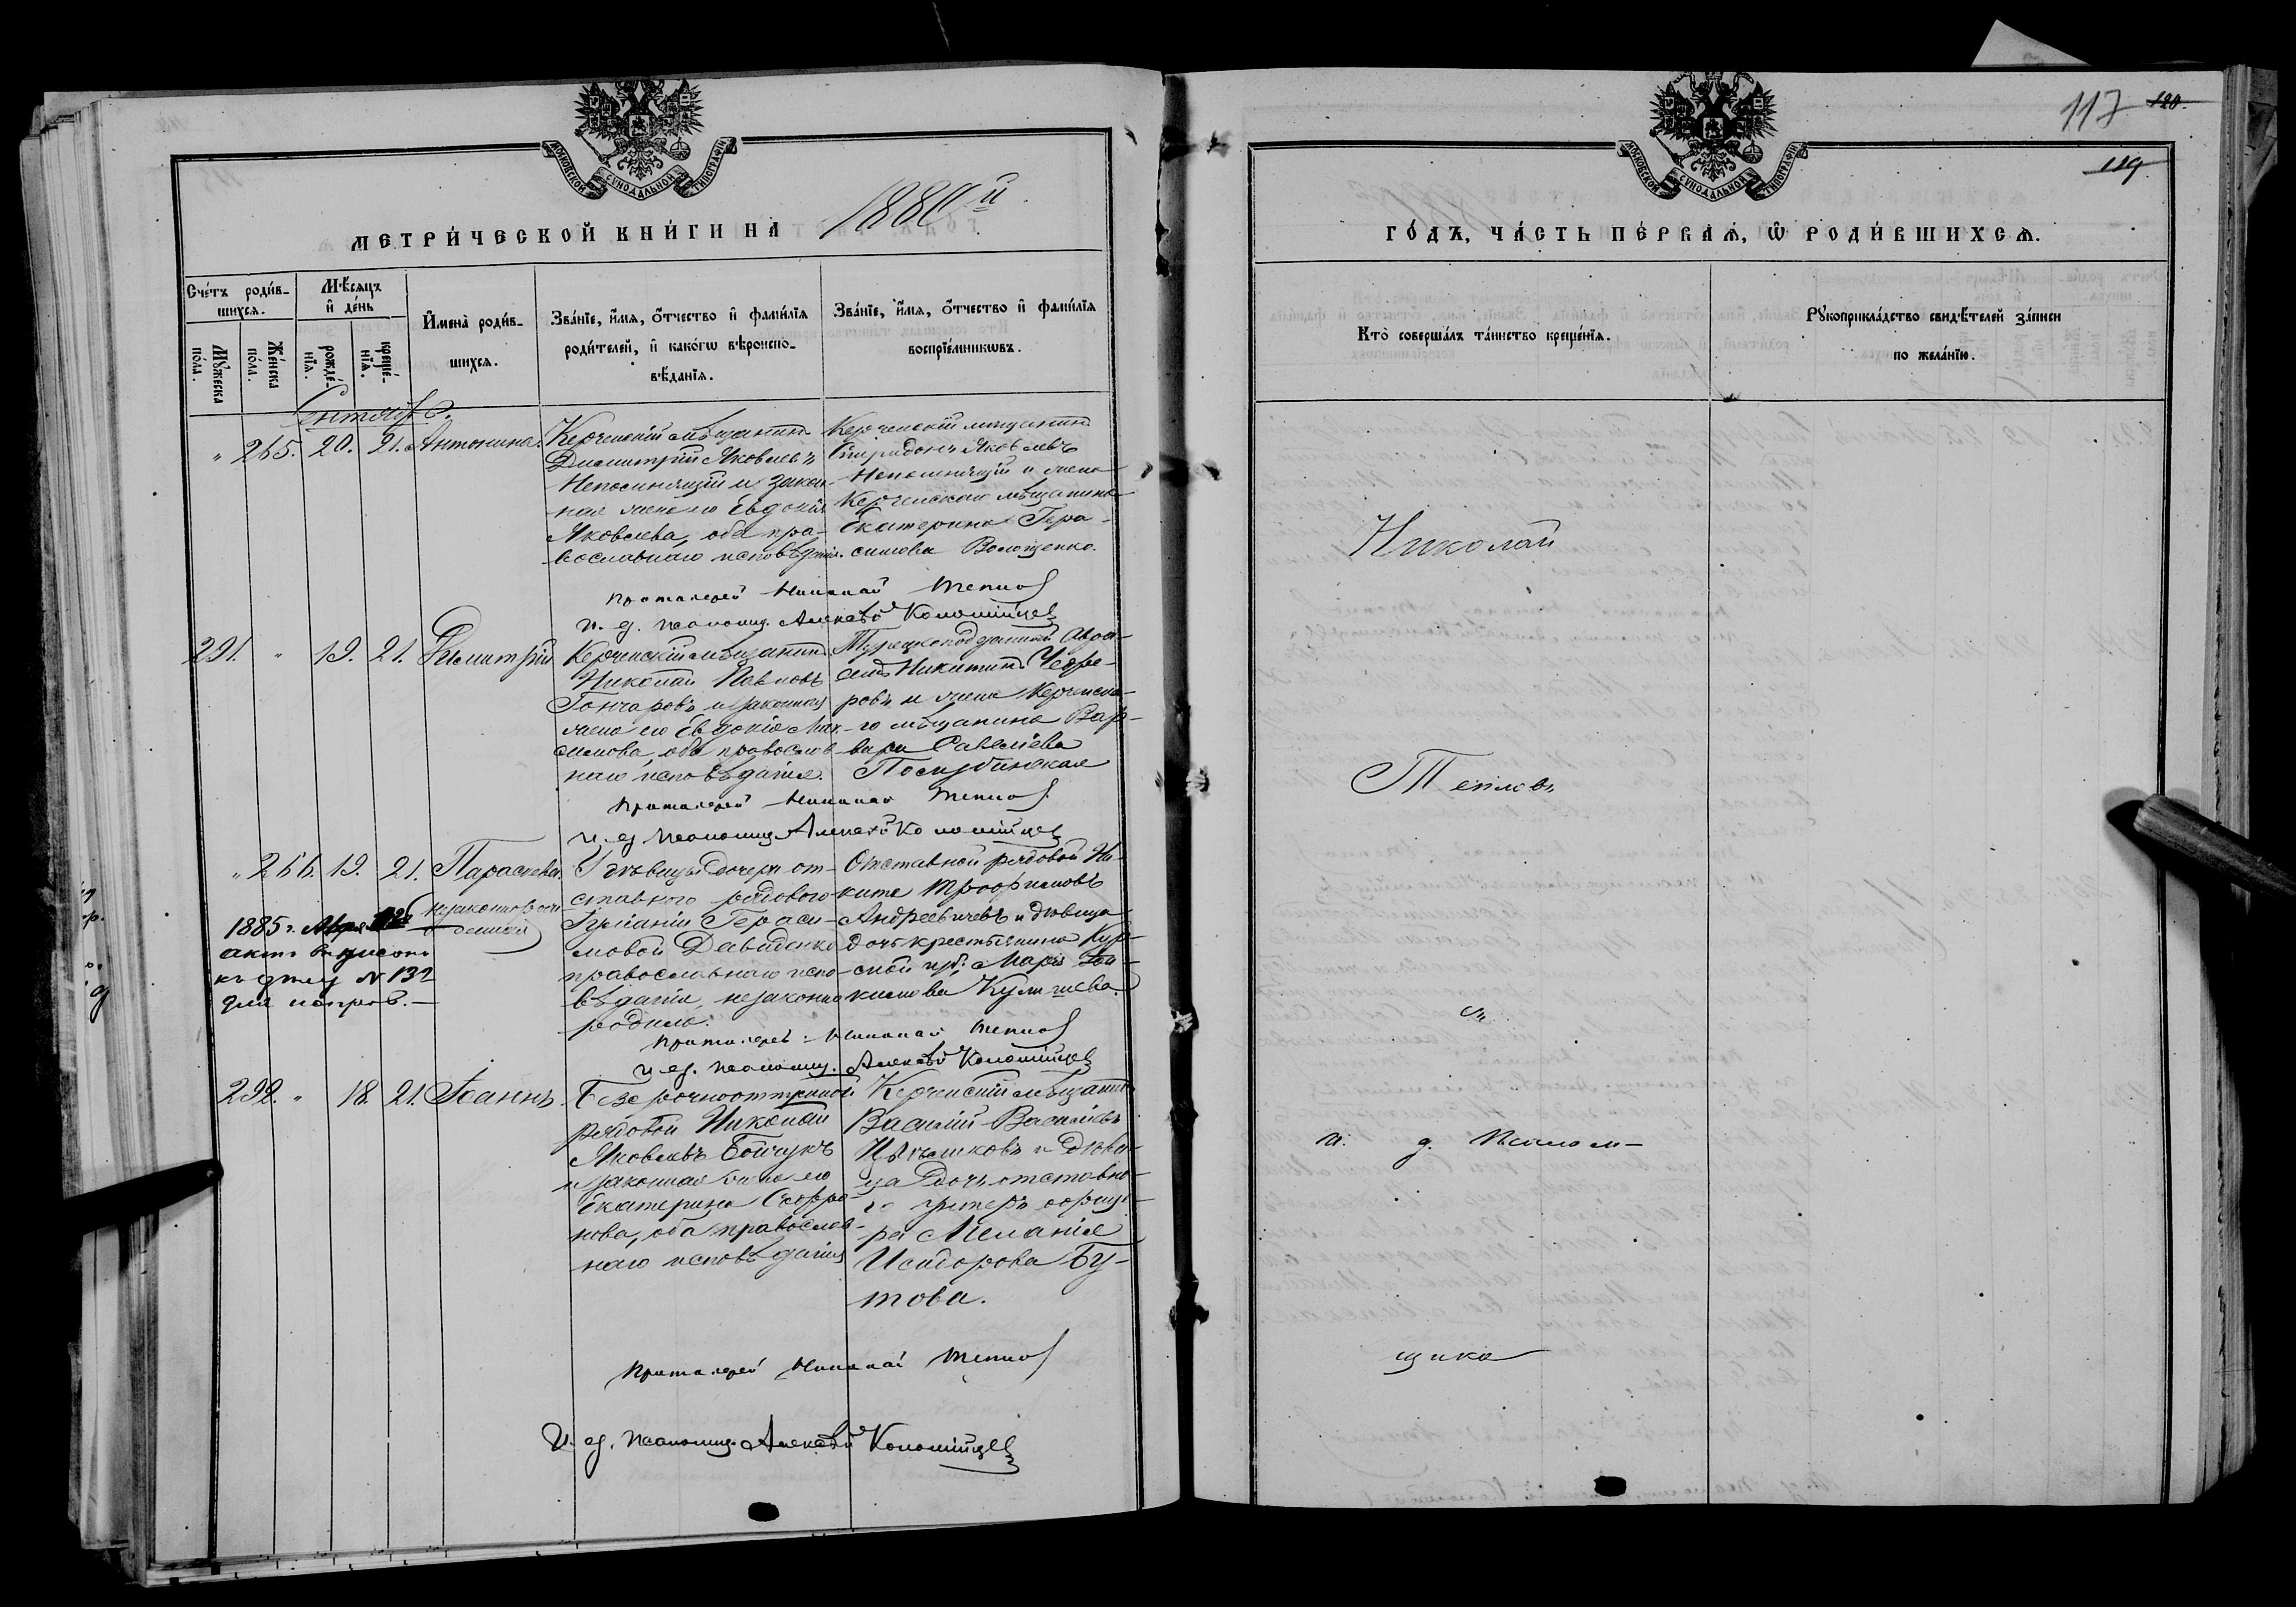 МОСКОВСКОЙ СѴНОДАЛЬНОЙ ТИПОГРАФІИ
МЕТРИ́ЧЕСКОЙ КНИ́ГИ НА 1880й
Счéтъ роди́в-
шихся.
Мꙋ́жеска пóла.
Жéнска пóла.
Мѣ́сяцъ и҆ дéнь
рождé-
нїѧ.
крещé-
нїѧ.
И҆менà роди́в-
шихся.
Звáнїе, и҆́мѧ, ѻ҆́тчество и҆ фамѝлїѧ
роди́телей, и҆ какóгѡ вѣроиспо-
вѣ́данїѧ.
Звáнїе, и҆́мѧ, ѻ҆́тчество и҆ фамѝлїѧ
воспрїéмникѡвъ.
Сентябрь.
" 265. 20. 21. Антонина.
Керченскій мѣщанинъ
Димитрій Яковлевъ
Непомнящій и закон-
ная жена его Евдокія
Яковлева, оба пра-
вославнаго исповѣданія.
Керченскій мѣщанинъ
Спиридонъ Яковлевъ
Непомнящій и жена
Керченскаго мѣщанина
Екатерина Гера-
симова Волощенко.
Протоіерей Николай Тепловъ
И. д. псаломщ. Алексѣй Коломійцевъ
291. " 19. 21. Димитрій
Керченскій мѣщанинъ
Николай Павловъ
Гончаровъ и законная
жена его Евдокія Мак-
симова, оба православ-
наго исповѣданія.
Турецкоподданный Авра-
амъ Никитинъ Чефре-
ровъ и жена Керченска-
го мѣщанина Вар-
вара Савелиева
Протоіерей Николай Тепловъ
И. д. псаломщ. Алексѣй Коломійцевъ
" 266. 19. 21. Параскева
незаконнорож-
денная
У дѣвицы дочери от-
ставного рядового
Іуліаніи Гераси-
мовой Давиденко
православнаго испо-
вѣданія, незаконно
родилась.
Отставной рядовой Ни-
кита Трофимовъ
Андреевичевъ и дѣвица
дочь крестьянина Кур-
ской губ. Марія Іоа-
кимова Кулишева.
1885 г.
актъ выписанъ
къ дѣлу № 132
для исправ.
Протоіерей Николай Тепловъ
И. д. псаломщ. Алексѣй Коломійцевъ
292. " 18. 21. Іоаннъ
Безсрочноотпускной
рядовой Николай
Яковлевъ Бойчукъ
и законная жена его
Екатерина Софро-
нова, оба православ-
наго исповѣданія
Керченскій мѣщанинъ
Василій Васильевъ
и дѣви-
ца дочь отставно-
го унтеръ офице-
ра Меланія
Исидорова Бу-
това.
Протоіерей Николай Тепловъ
И. д. псаломщ. Алексѣй Коломійцевъ
117 120.
119
МОСКОВСКОЙ СѴНОДАЛЬНОЙ ТИПОГРАФІИ
ГÓДЪ, ЧÁСТЬ ПÉРВАѦ, Ѽ РОДИ́ВШИХСѦ.
Ктò совершáлъ тáинство крещéнїѧ.
Рꙋкоприклáдство свидѣ́телей зáписи
по желáнїю.
Николай
Тепловъ
съ
и. д. Псалом-
щика